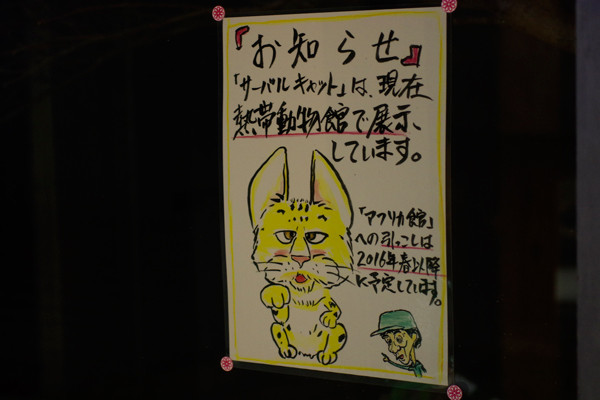 『お知らせ』
「サーバルキャット」は、現在
熱帯動物館で展示、
しています。
「アフリカ館」
への引っこしは
2016年春以降
に予定しています。